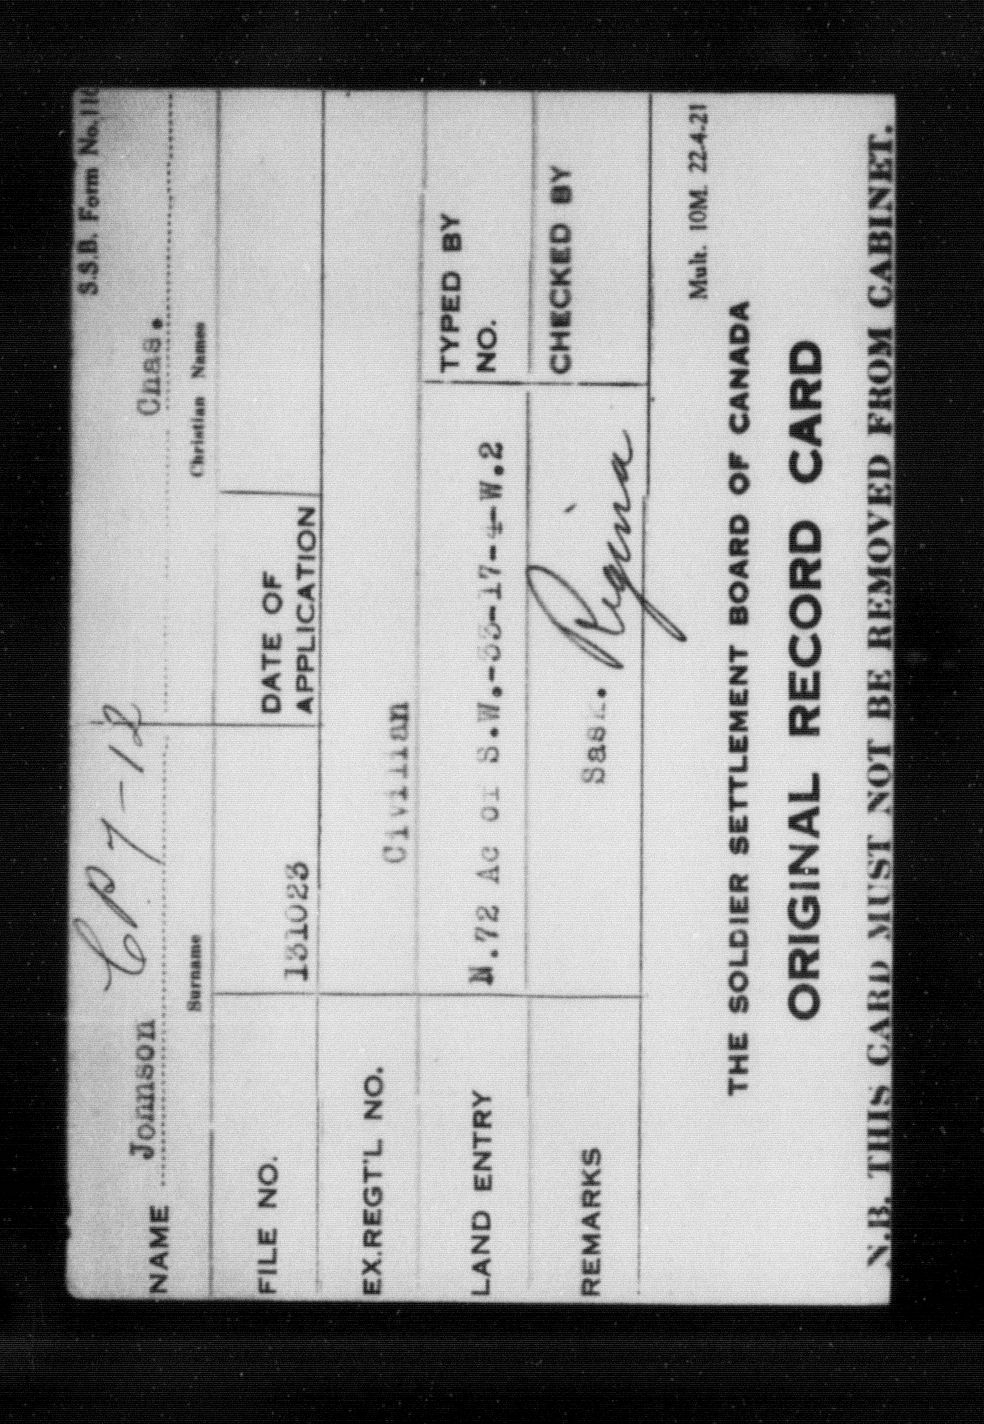 S.S.B. Form No. 110
CP 7-18
NAME Johnson Chas.
Surname Christian Names
FILE NO. 131023 DATE OF APPLICATION
EX.REGT'L NO. Civilian
LAND ENTRY N.72 Ac of S.W.-33-17-4-W.2 TYPED BY NO.
REMARKS Sask. Regina CHECKED BY
Mult. 10M. 22-4-21
THE SOLDIER SETTLEMENT BOARD OF CANADA
ORIGINAL RECORD CARD
N.B. THIS CARD MUST NOT BE REMOVED FROM CABINET.